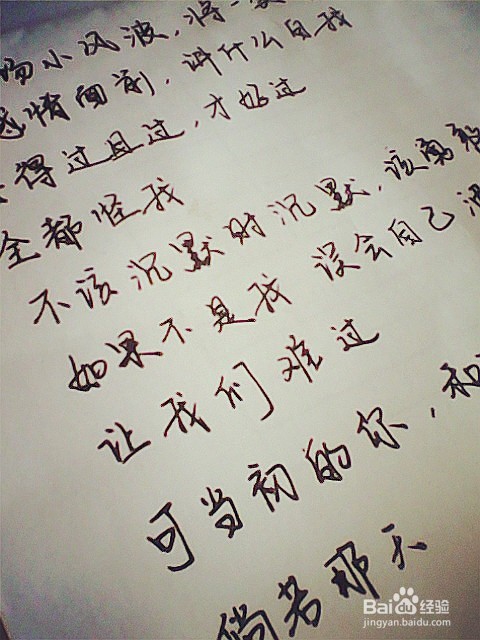 场小风波，将一
感情面前，讲什么自我
得过且过，才好过
全都怪我
不该沉默时沉默，该勇敢
如果不是我 误会自己洒
让我们难过
可当初的你，和
倘若那天
Baidu经验
jingyan.baidu.com